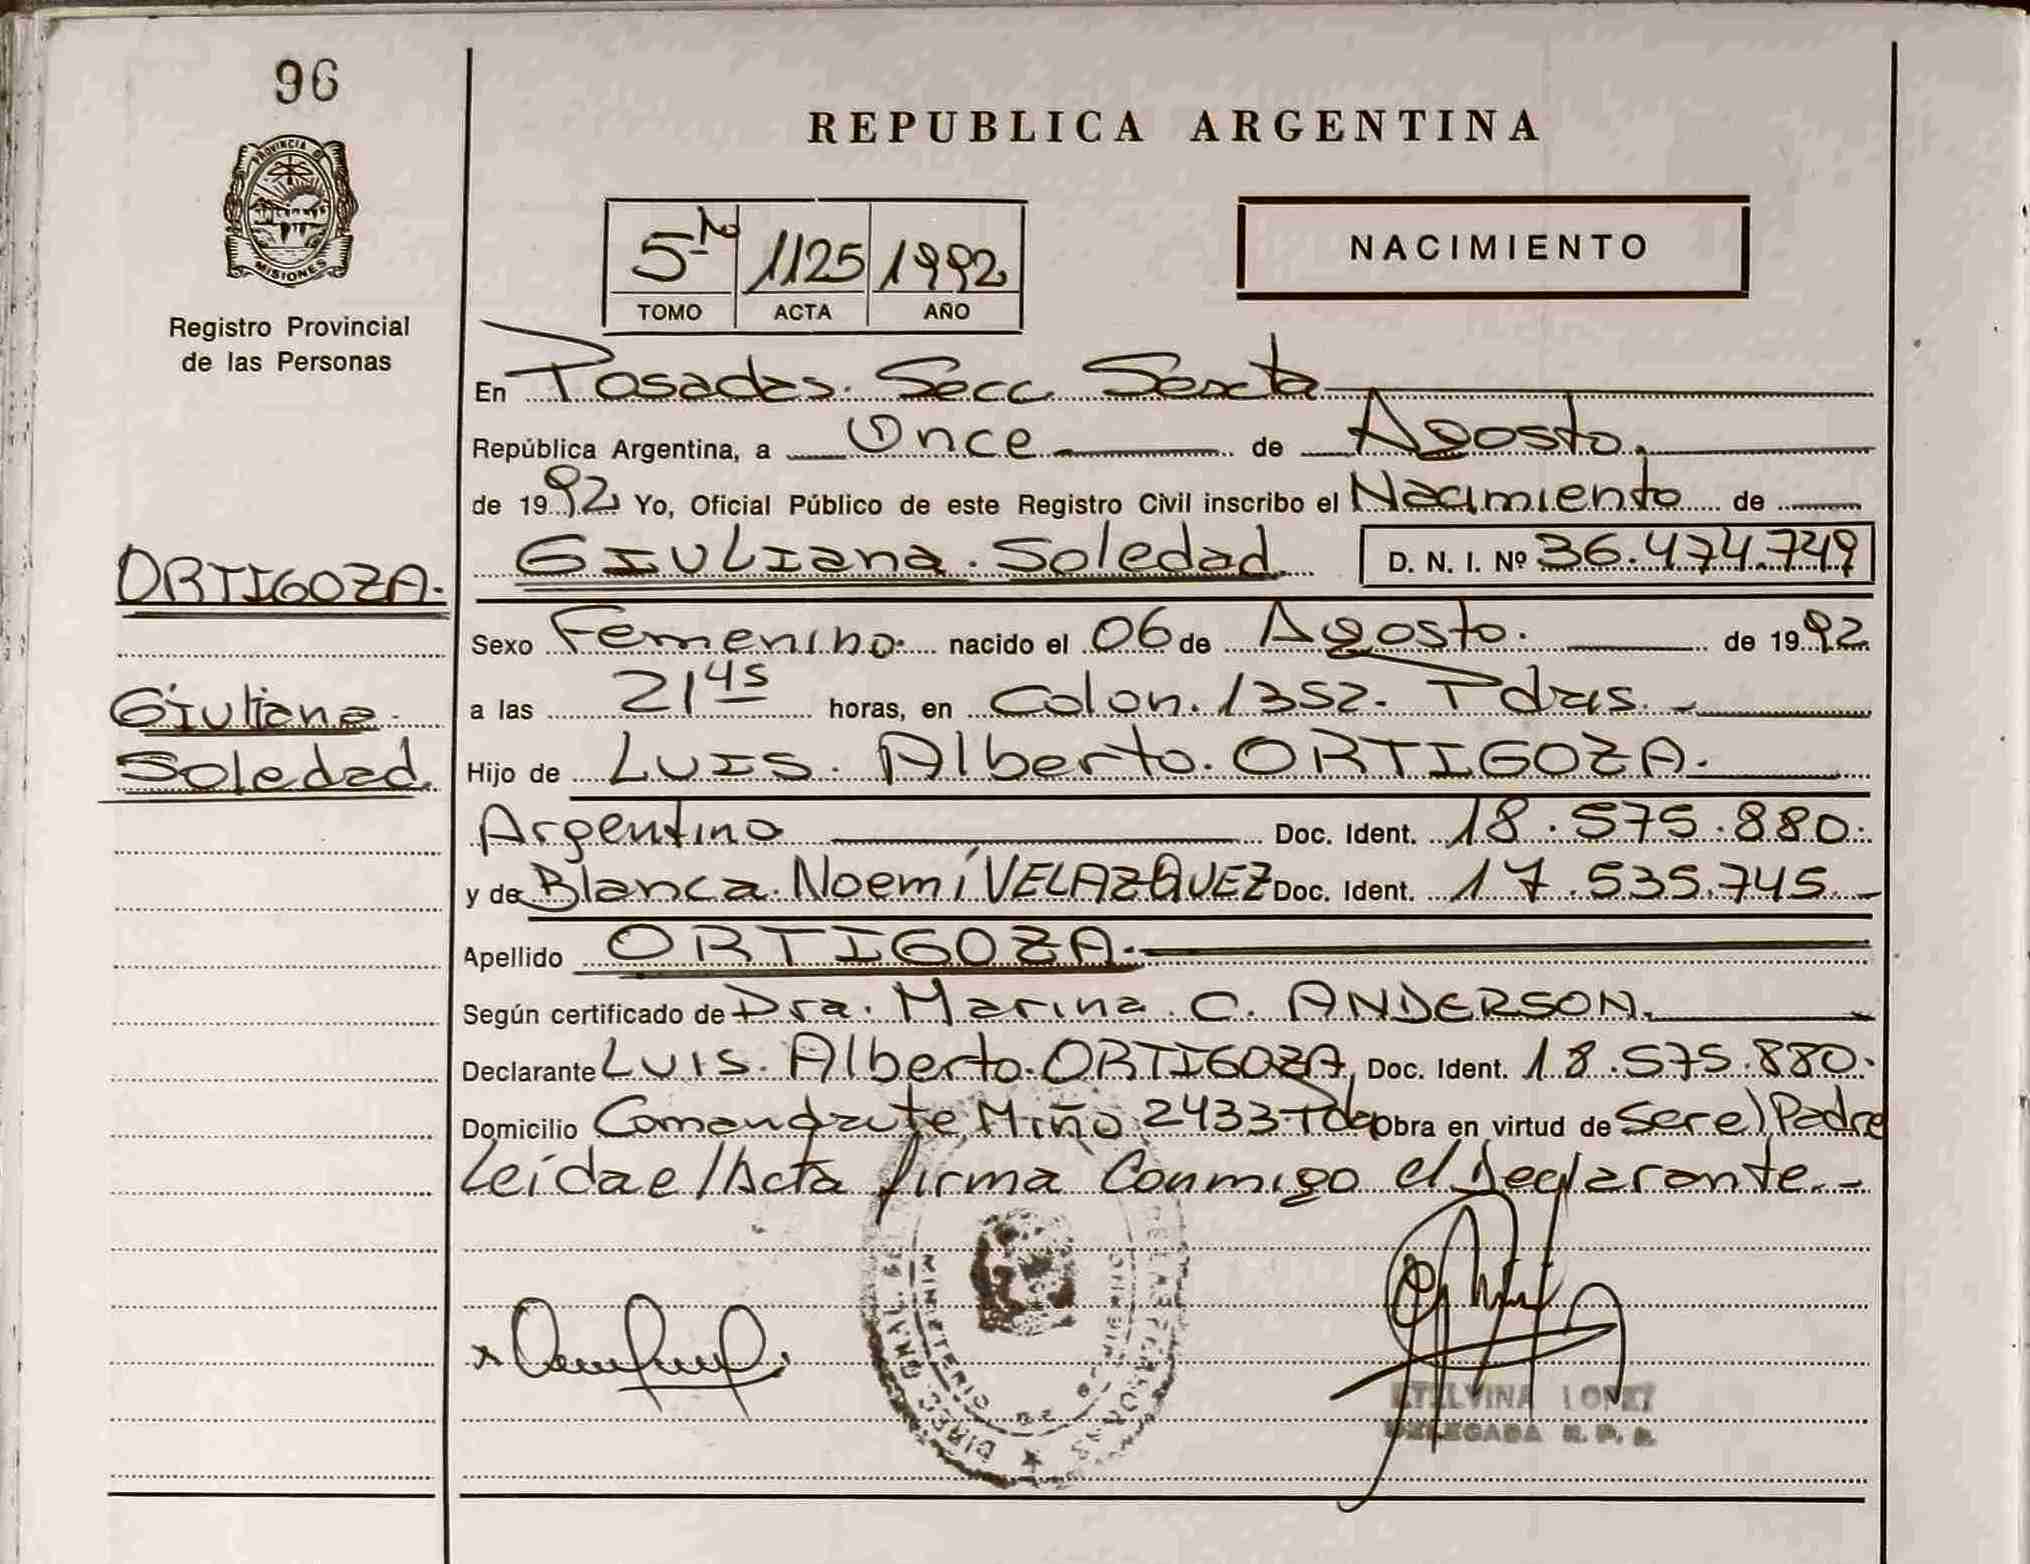 96
PROVINCIA DE
MISIONES
Registro Provincial
de las Personas
REPUBLICA ARGENTINA
5to 1125 1992
TOMO ACTA AÑO
NACIMIENTO
En Posadas. Secc. Sexta
República Argentina, a Once de Agosto.
de 1992 Yo, Oficial Público de este Registro Civil inscribo el Nacimiento de
Giuliana. Soledad D. N. I. Nº 36.474.749
ORTIGOZA.
Giuliana.
Soledad.
Sexo Femenino. nacido el 06 de Agosto. de 1992.
a las 21 45 horas, en Colon. 1352. Pdas.
Hijo de Luis. Alberto. ORTIGOZA.
Argentino Doc. Ident. 18.575.880.
y de Blanca. Noemí VELAZQUEZ Doc. Ident. 17.535.745.
Apellido ORTIGOZA.
Según certificado de Dra. Marina. C. ANDERSON.
Declarante Luis. Alberto. ORTIGOZA, Doc. Ident. 18.575.880.
Domicilio Comandante Miño 2433 Pdas Obra en virtud de Ser el Padre
Leída el Acta firma Conmigo el Declarante.-
MINISTERIO
ETELVINA LOPEZ
DELEGADA R. P. P.